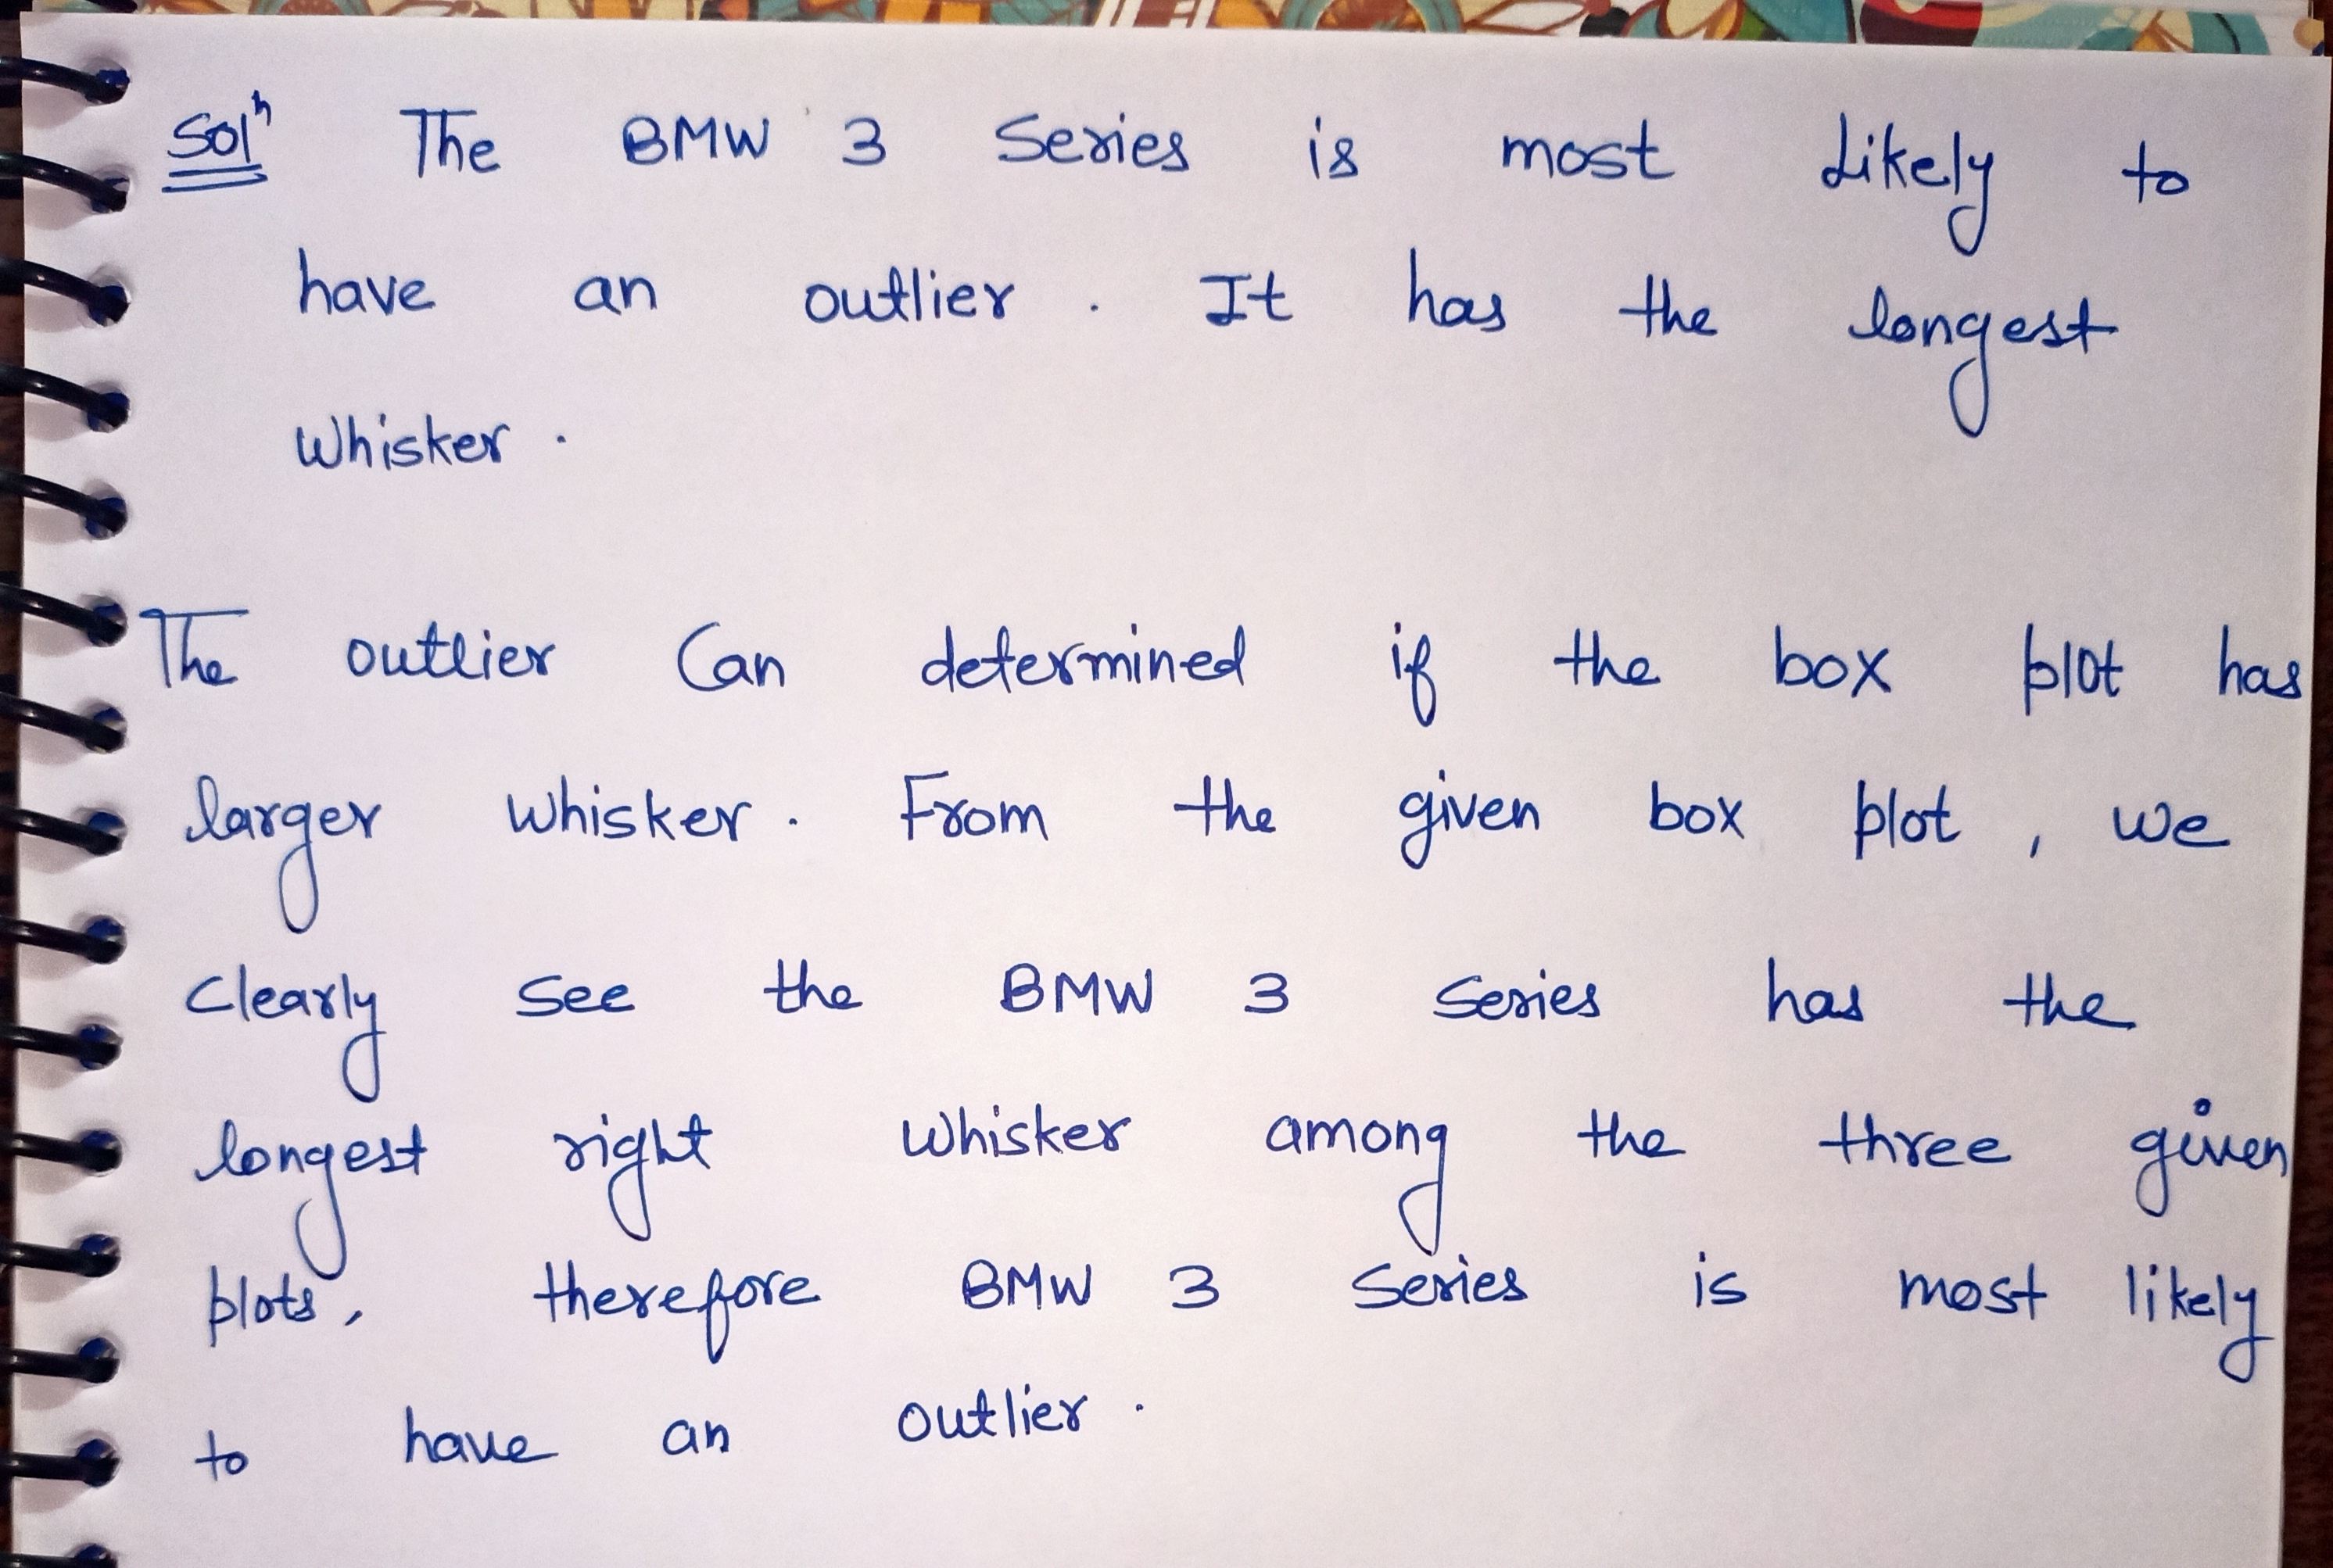 Solⁿ The BMW 3 Series is most likely to
have an outlier . It has the longest
whisker .
The outlier Can determined if the box plot has
larger whisker . From the given box plot , we
clearly see the BMW 3 Series has the
longest right whisker among the three given
plots , therefore BMW 3 Series is most likely
to have an outlier .